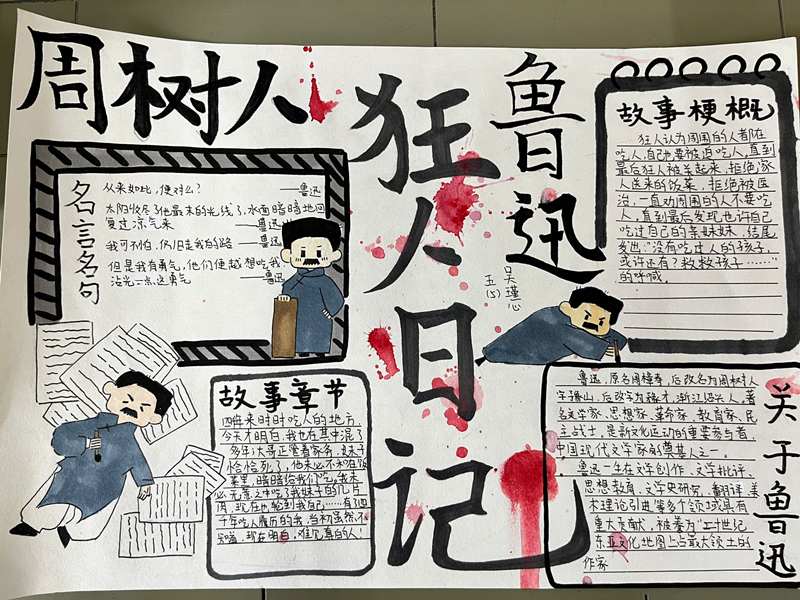 周树人
狂人日记
鲁迅
名言名句
从来如此,便对么?
——鲁迅
太阳收尽了他最末的光线了,水面暗暗地回
复过凉气来 ——鲁迅
我可不怕,仍旧走我的路 ——鲁迅
但是我有勇气,他们便越想吃我,
沾光一点这勇气 ——鲁迅
吴瑾心
五(5)
故事梗概
狂人认为周围的人都在
吃人,自己也要被迫吃人,直到
最后狂人被关起来,拒绝家
人送来的饭菜,拒绝被医
治,一直劝周围的人不要吃
人,直到最后发现也许自己
吃过自己的亲妹妹,结尾
发出:“没有吃过人的孩子,
或许还有?救救孩子……”
的呼喊。
故事章节
四千年来时时吃人的地方,
今天才明白,我也在其中混了
多年;大哥正管着家务,妹子
恰恰死了,他未必不和在饭
菜里,暗暗给我们吃。我未
必无意之中吃了我妹子的几片
肉,现在也轮到我自己……有了四
千年吃人履历的我,当初虽然不
知道,现在明白,难见真的人!
关于鲁迅
鲁迅,原名周樟寿,后改名为周树人
字豫山,后改字为豫才,浙江绍兴人,著
名文学家、思想家、革命家、教育家、民
主战士,是新文化运动的重要参与者,
中国现代文学家的奠基人之一。
鲁迅一生在文学创作、文学批评、
思想教育、文学史研究、翻译、美
术理论引进等多个领域具有
重大贡献,被誉为“二十世纪
东亚文化地图上占最大领土的
作家